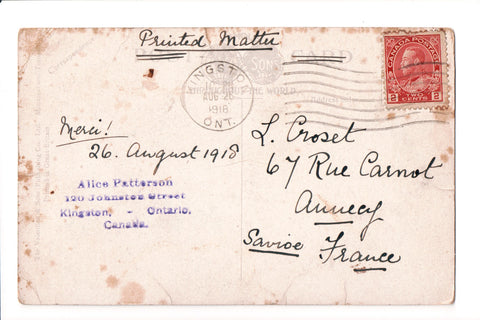 Printed Matter
CARD
SONS
THE WORLD.
KINGSTON
AUG
1918
ONT.
CANADA POSTAGE
2 2
TWO
CENTS
Merci!
26. August 1918
Alice Patterson
120 Johnston Street
Kingston, - Ontario,
Canada.
L. Croset
67 Rue Carnot
Annecy
Savioe France